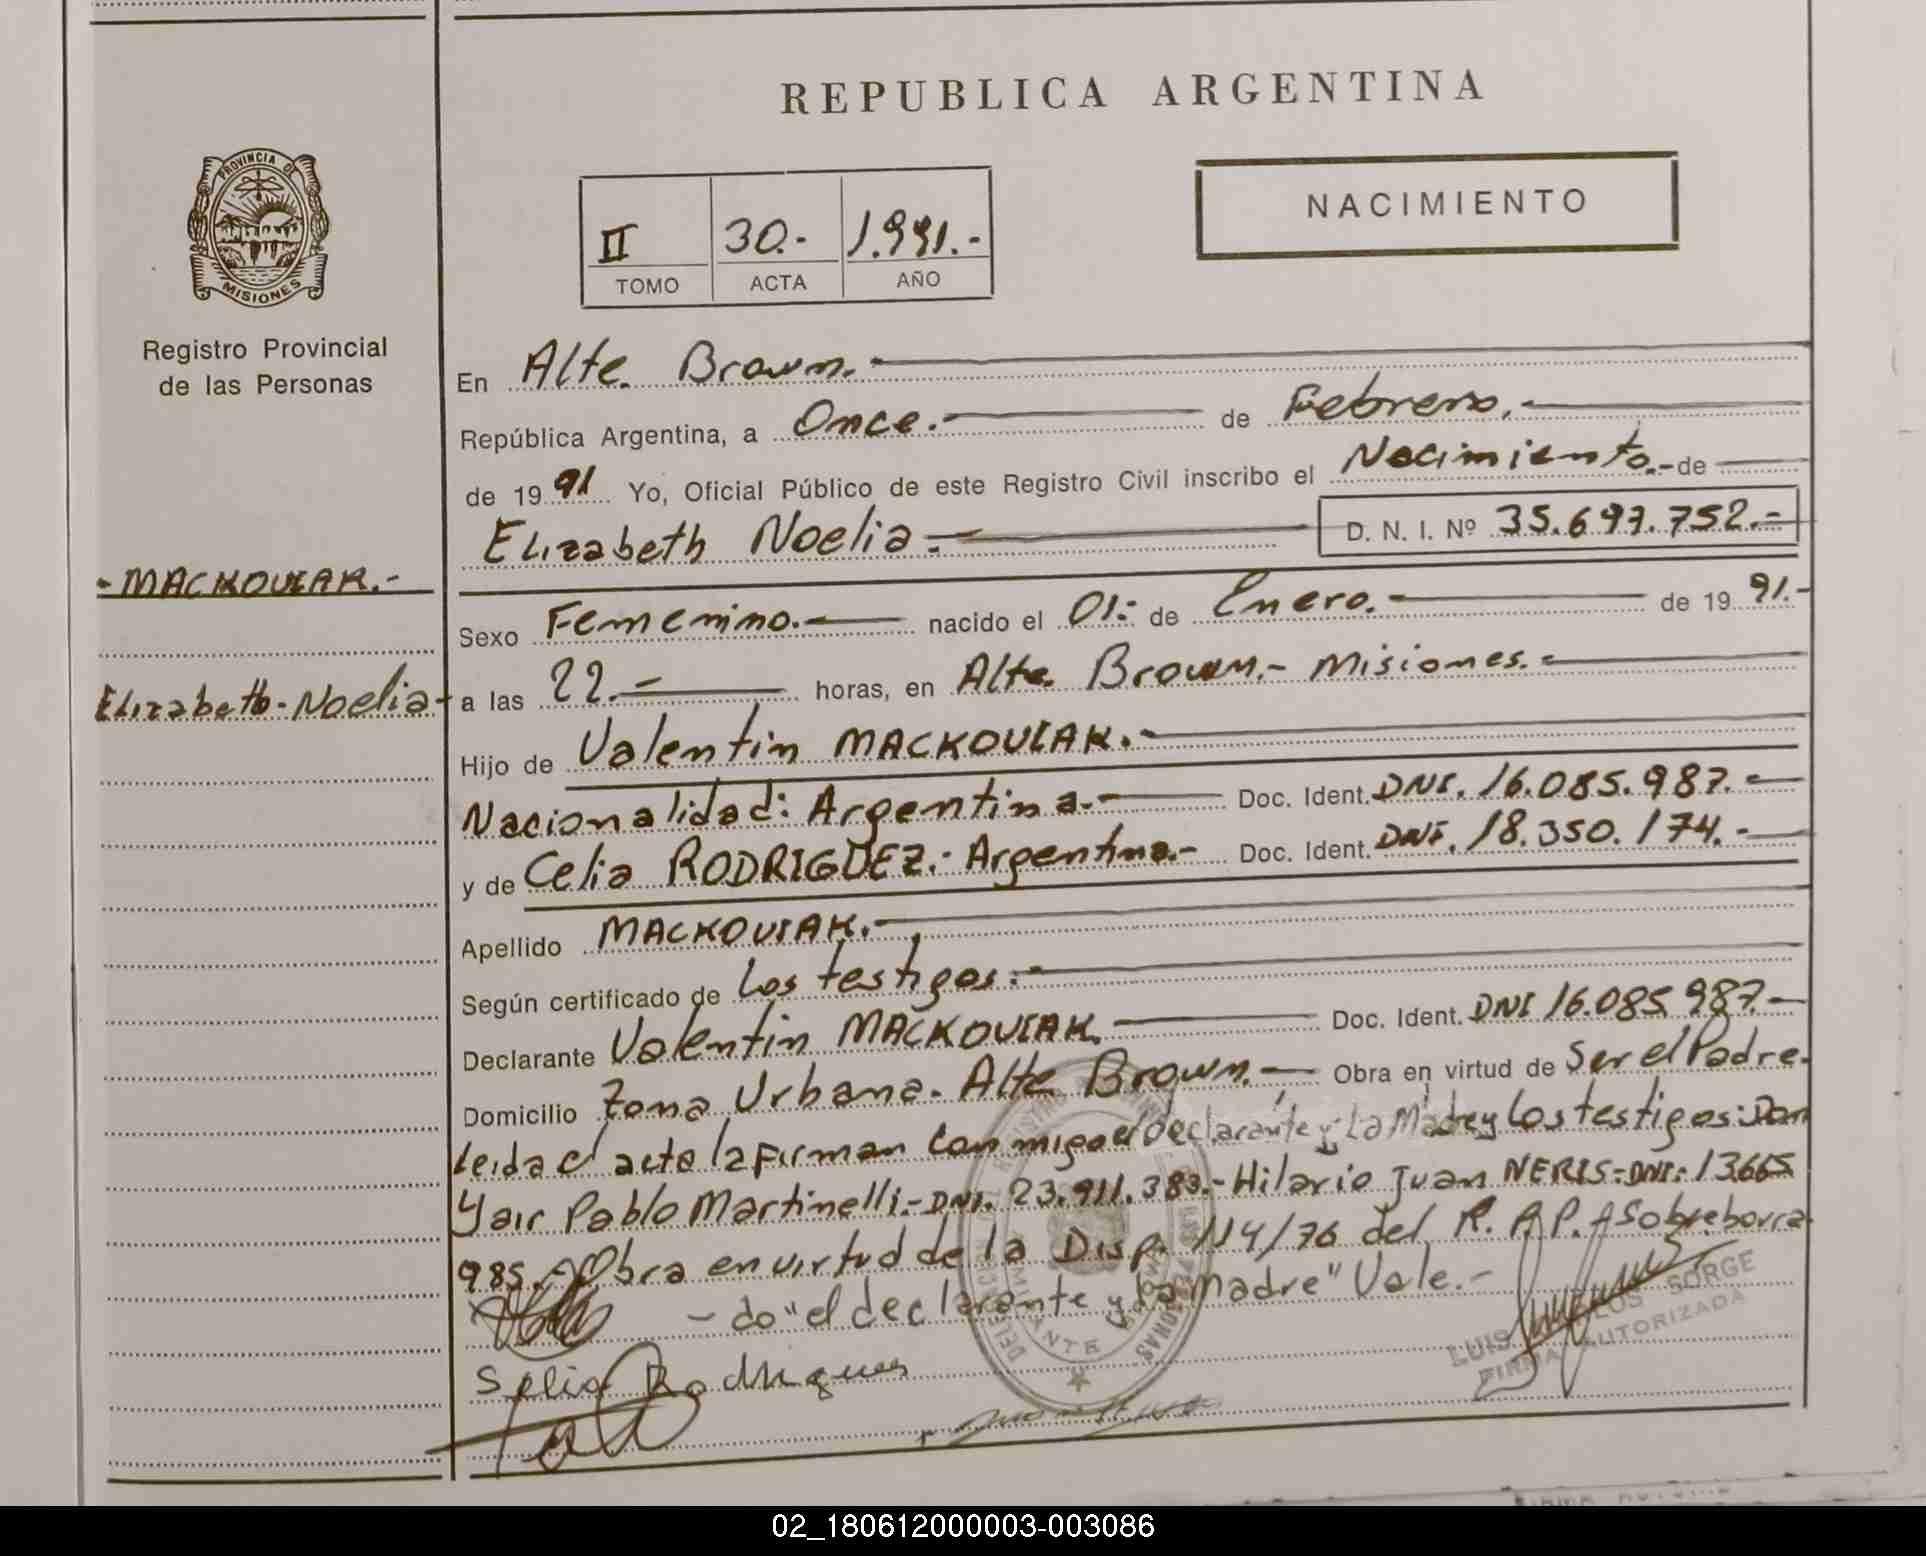 REPUBLICA ARGENTINA
PROVINCIA DE
MISIONES
Registro Provincial
de las Personas
NACIMIENTO
II 30.- 1.991.-
TOMO ACTA AÑO
En Alte. Brown.-
República Argentina, a Once.- de Febrero.-
de 19 91 Yo, Oficial Público de este Registro Civil inscribo el Nacimiento.- de
Elizabeth Noelia.- D. N. I. Nº 35.697.752.-
- MACKOVIAK.-
Elizabeth - Noelia-
Sexo Femenino.- nacido el 01.- de Enero.- de 19 91.-
a las 22.- horas, en Alte. Brown.- Misiones.-
Hijo de Valentin MACKOVIAK.-
Nacionalidad: Argentina.- Doc. Ident. DNI. 16.085.987.-
y de Celia RODRIGUEZ.- Argentina.- Doc. Ident. DNI. 18.350.174.-
Apellido MACKOVIAK.-
Según certificado de Los testigos.-
Declarante Valentin MACKOVIAK. Doc. Ident. DNI 16.085.987.-
Domicilio Zona Urbana. Alte Brown.- Obra en virtud de Ser el Padre.
Leida el acta la firman con migo el declarante y La Madre y Los testigos: Don
Yair Pablo Martinelli.- DNI. 23.911.383.- Hilario Juan NERIS.- DNI: 13.665
985.- Obra en virtud de la Disp. 114/76 del R. P. P. Sobreborra
- do "el declarante y La Madre" Vale.-
Selia Rodrigues
LUIS CARLOS SORGE
FIRMA AUTORIZADA
02_180612000003-003086